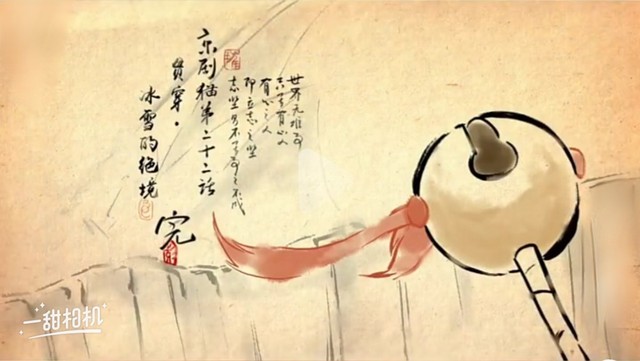 世界无难事
只畏有心人
有心之人
即立志之坚
京剧猫第二十二话
贯穿·
冰雪的绝境
完
一甜相机